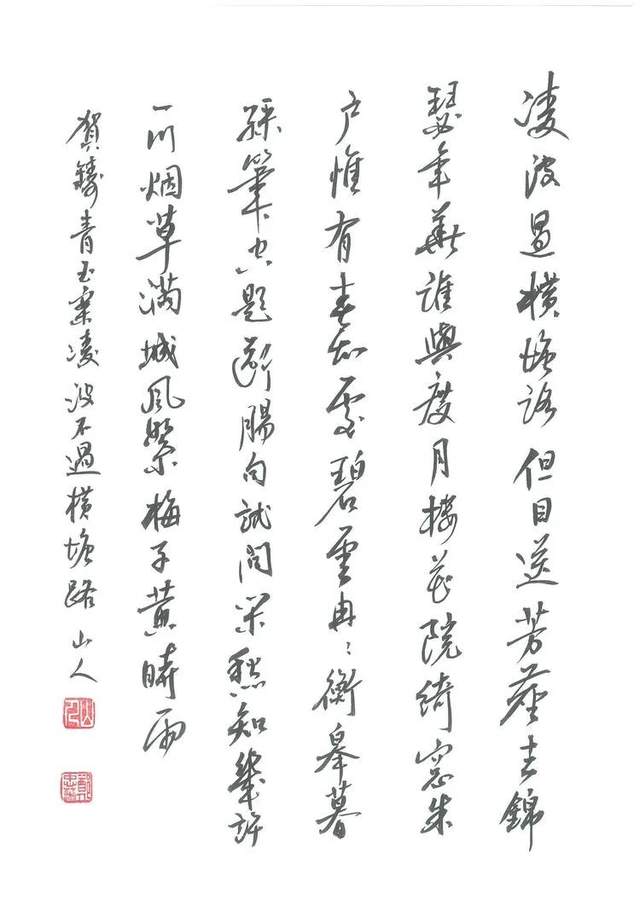 凌波過橫塘路但目送芳塵去錦
瑟年華誰與度月樓花院綺窗朱
户惟有春知處碧雲冉〻蘅皋暮
綵筆空題斷腸句試問閑愁知幾許
一川烟草滿城風絮梅子黃時雨
賀鑄青玉案凌波不過橫塘路 山人